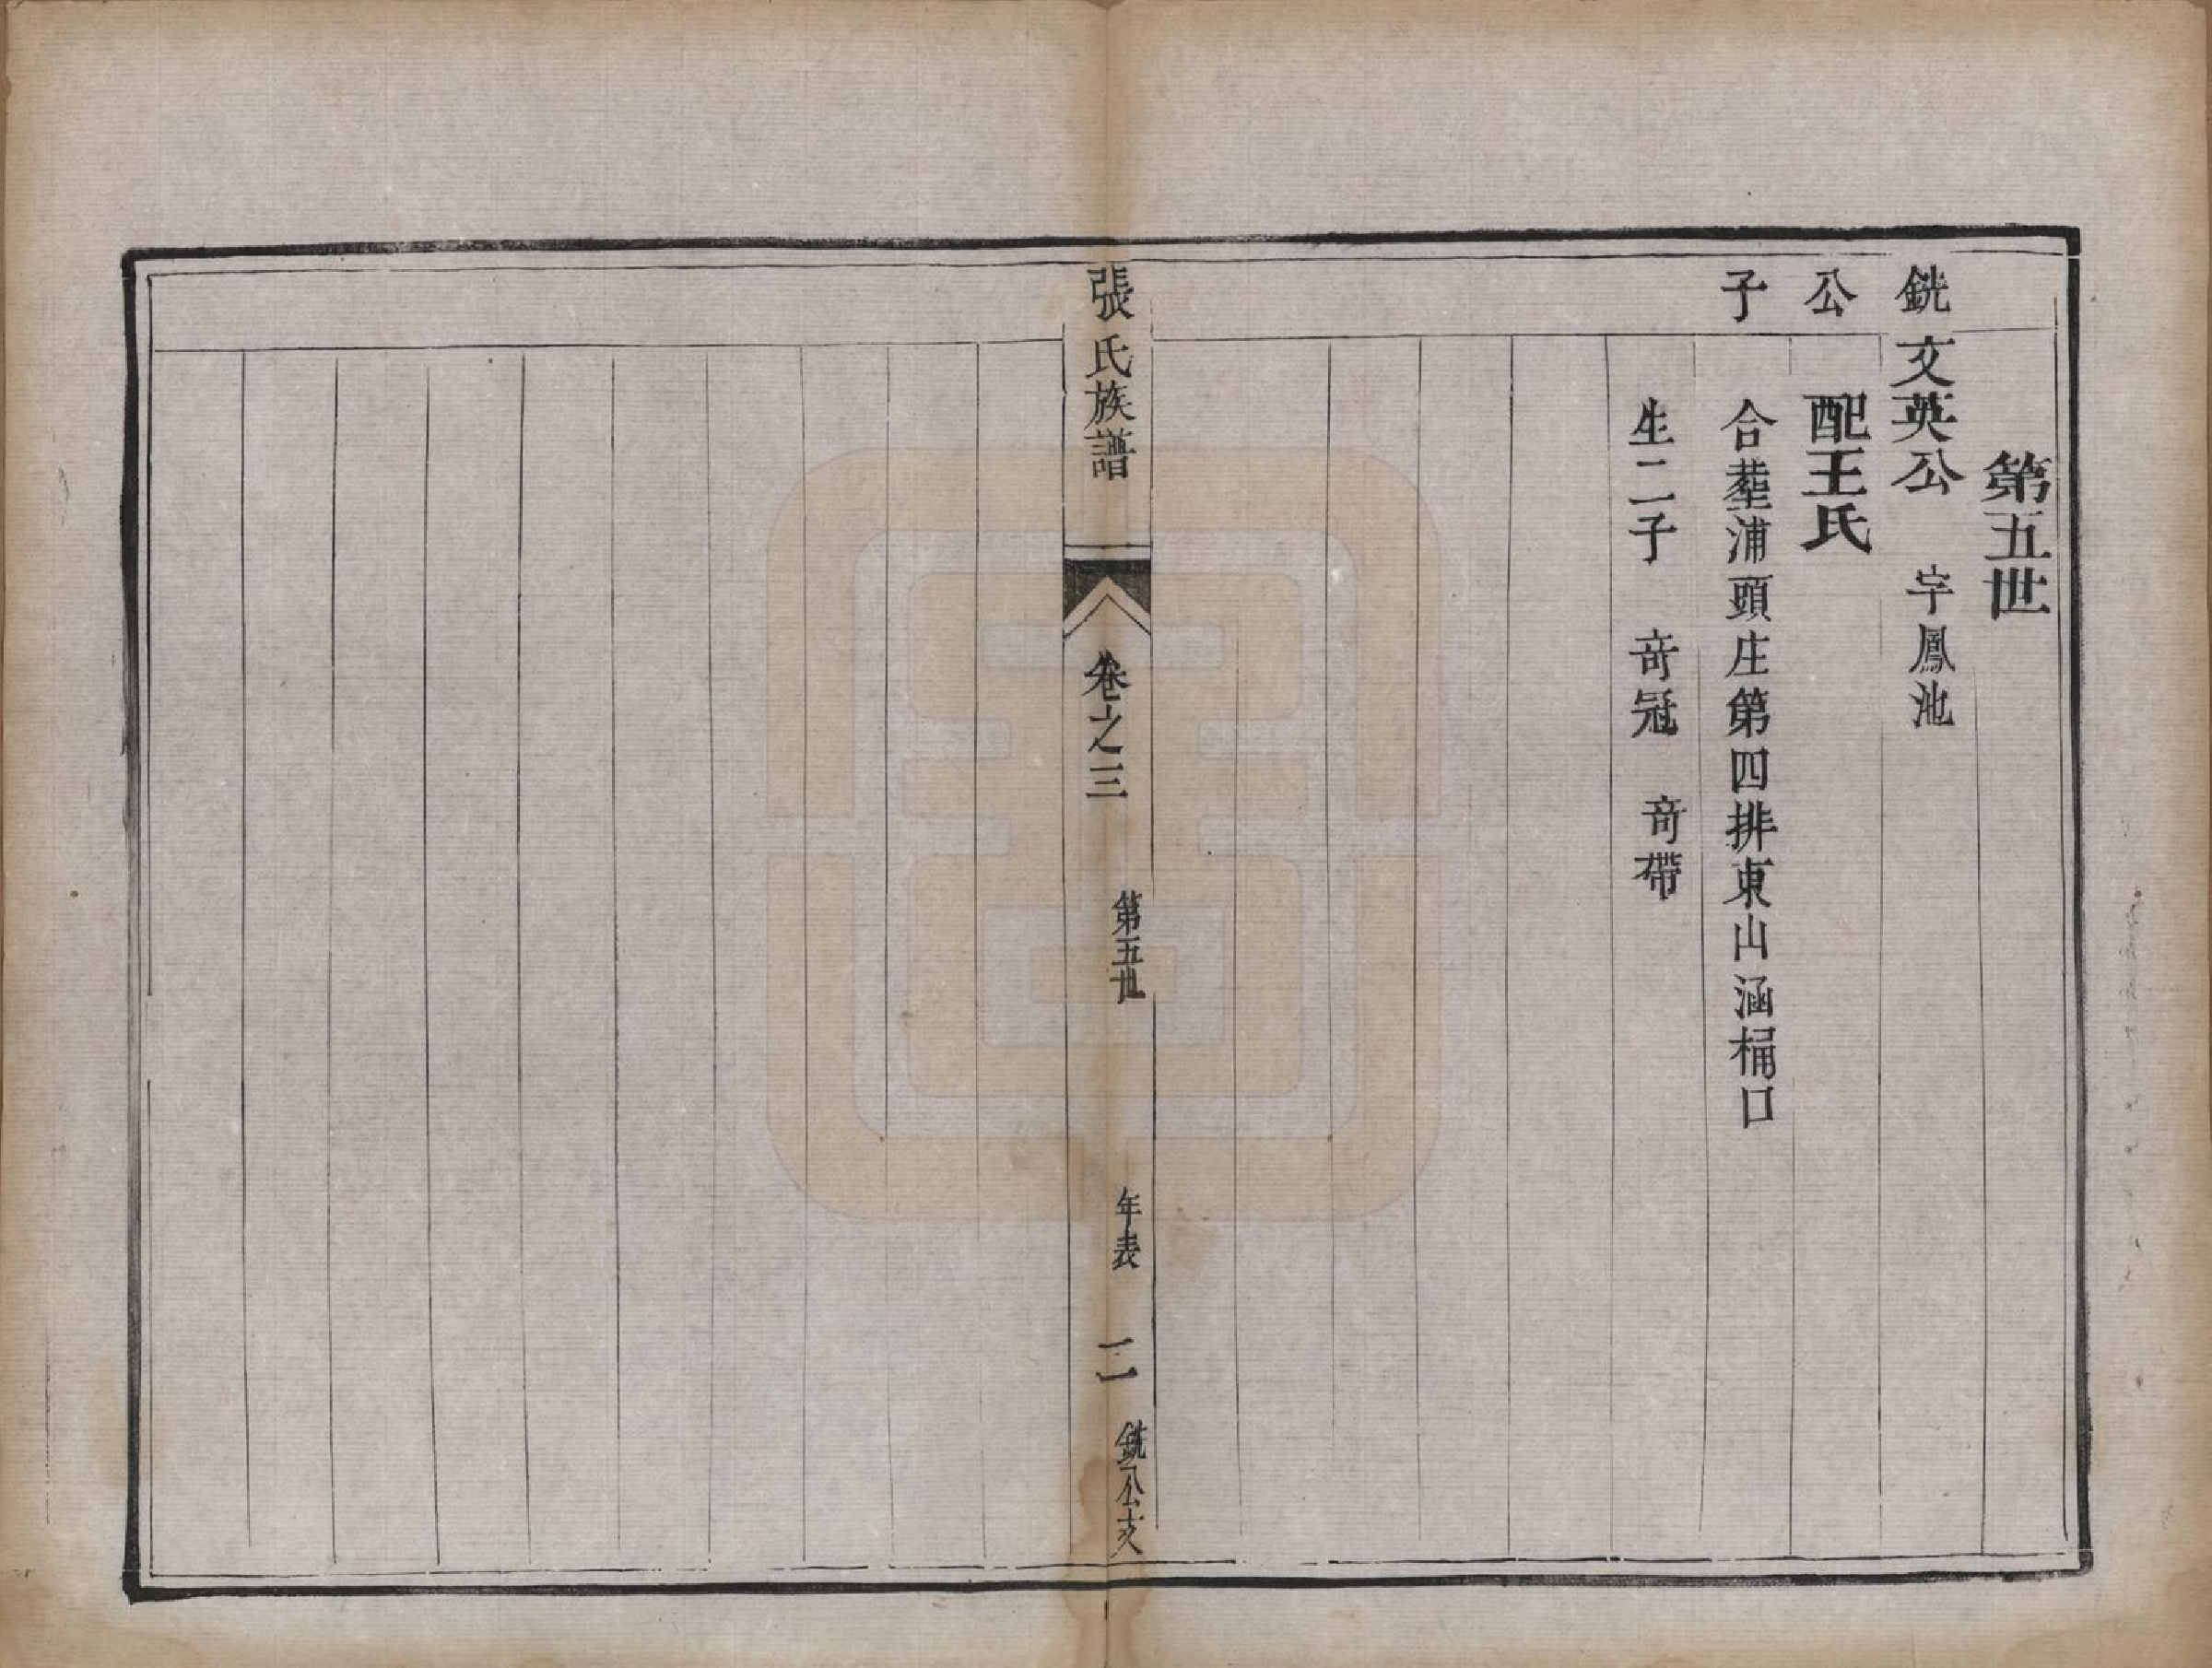 第五世
銑 文英公 字鳳池
公 配王氏
子 合塟浦頭庄第四排東山涵桶口
生二子 奇冠 奇帶
張氏族譜 卷之三 第五世 年表 二 銑公支